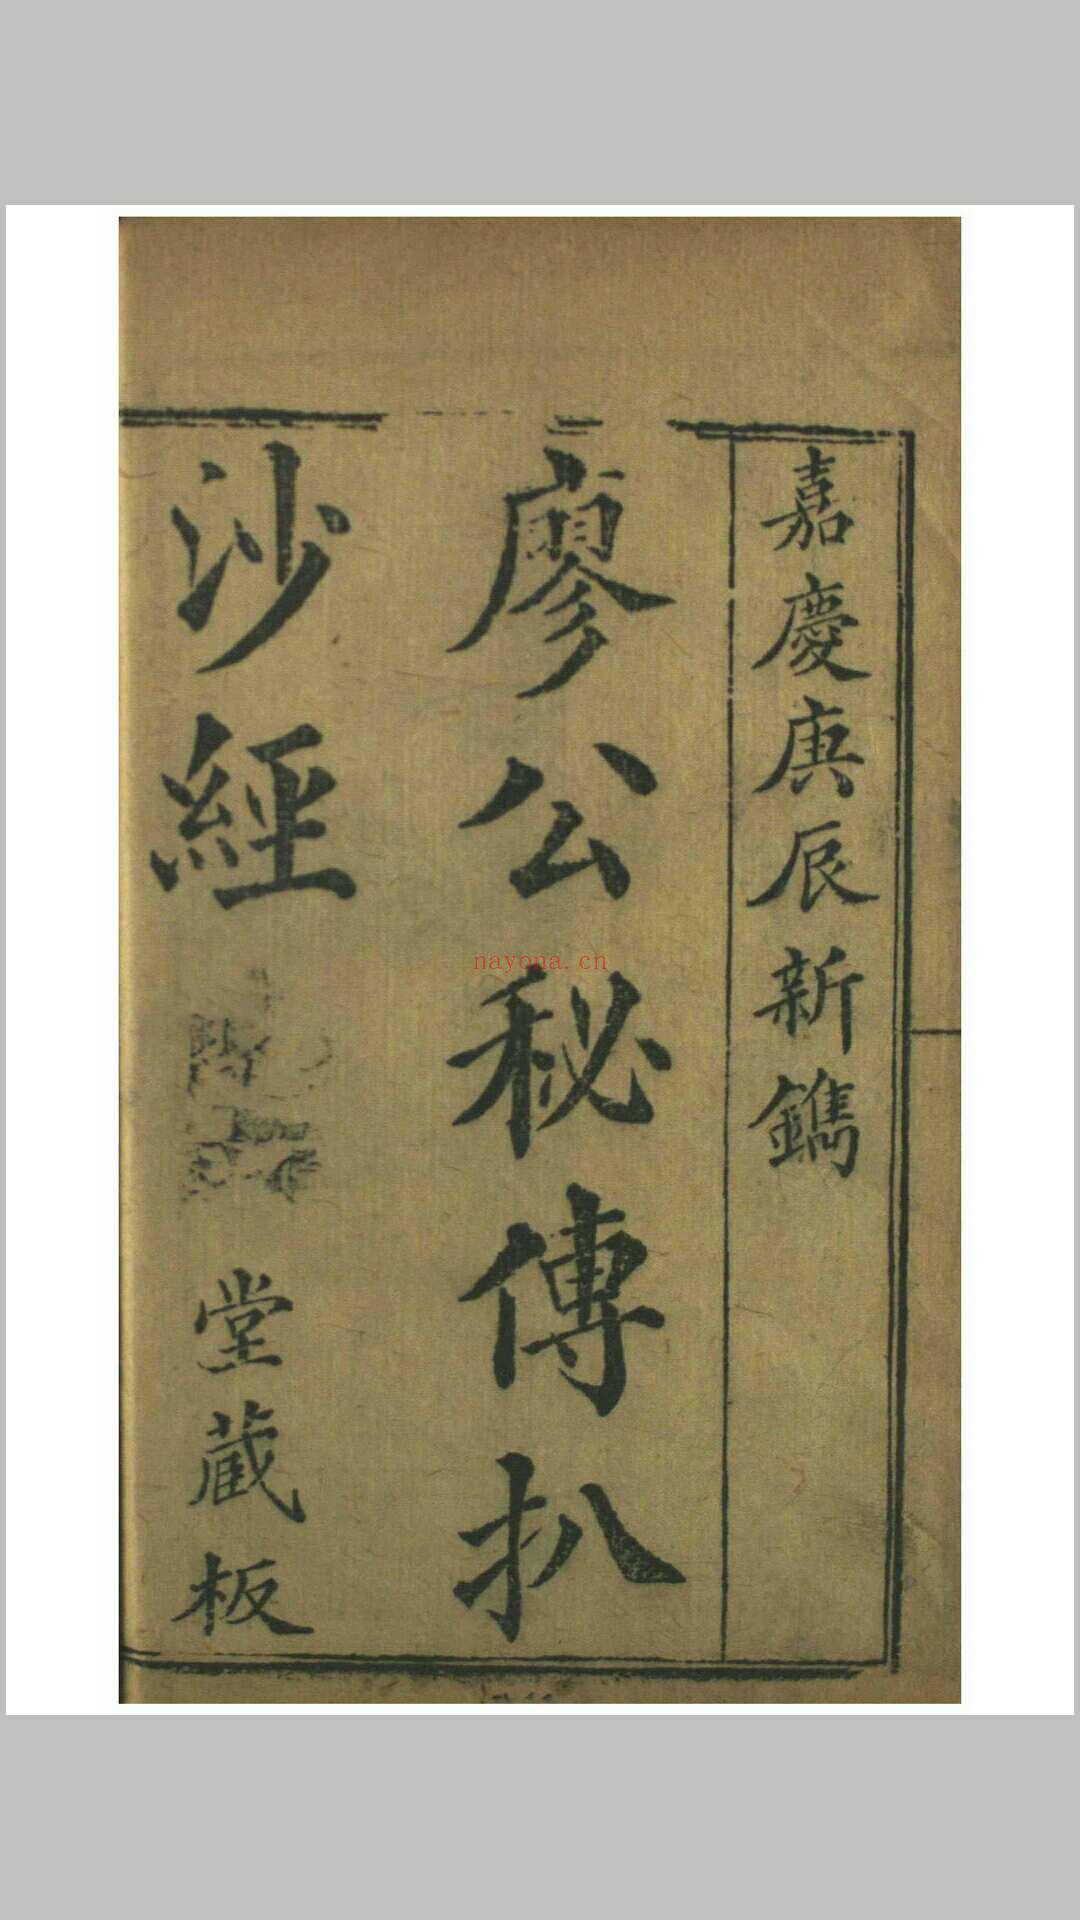 嘉慶庚辰新鐫
廖公秘傳扒
沙經
堂藏板
nayona.cn